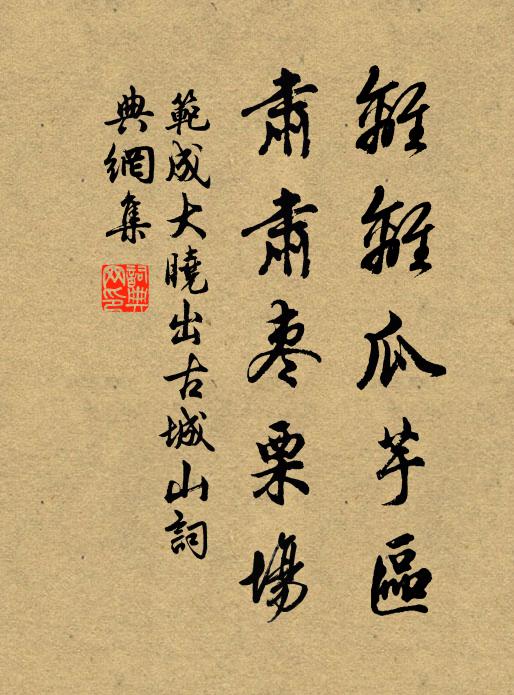 離離瓜芋區
肅肅棗栗場
範成大曉出古城山詞
典網集
詞典
网印